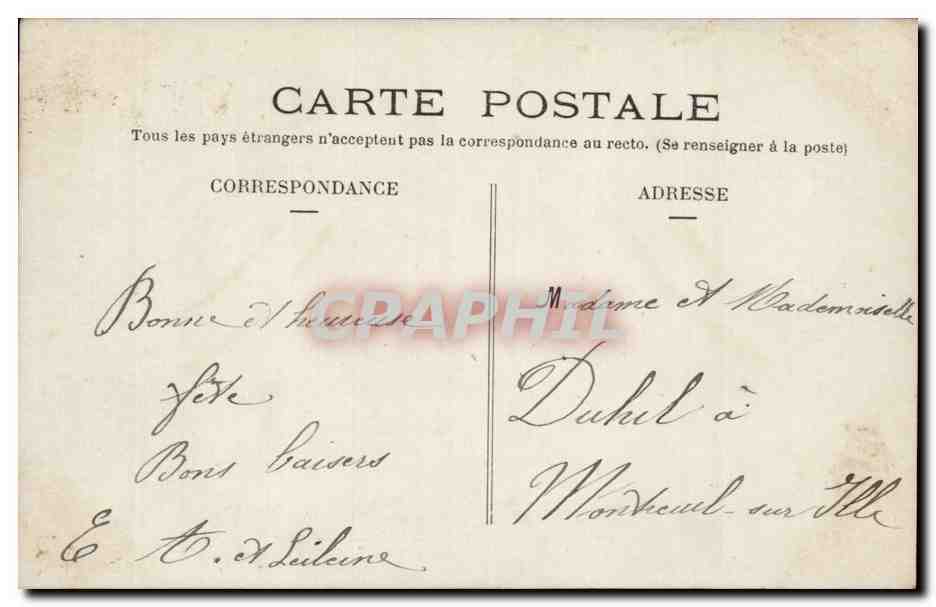 CARTE POSTALE
Tous les pays étrangers n'acceptent pas la correspondance au recto. (Se renseigner à la poste)
CORRESPONDANCE
Bonne et heureuse
fête
Bons baisers
E A. et
ADRESSE
Madame et Mademoiselle
Duhil à
Montreuil-sur Ille
CPAPHIL